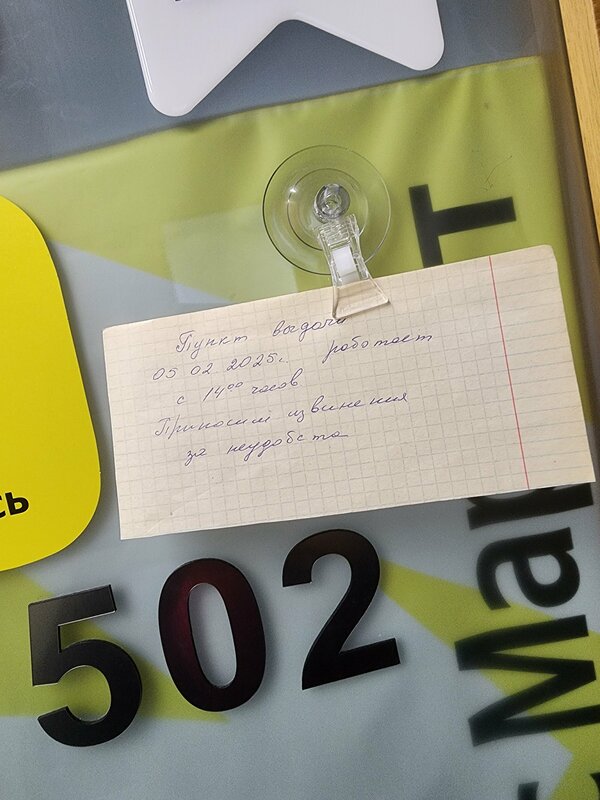 Пункт выдачи
05 02 2025г. работает
с 14⁰⁰ часов
Приносим извинения
за неудобства
502
сь
т Мар т